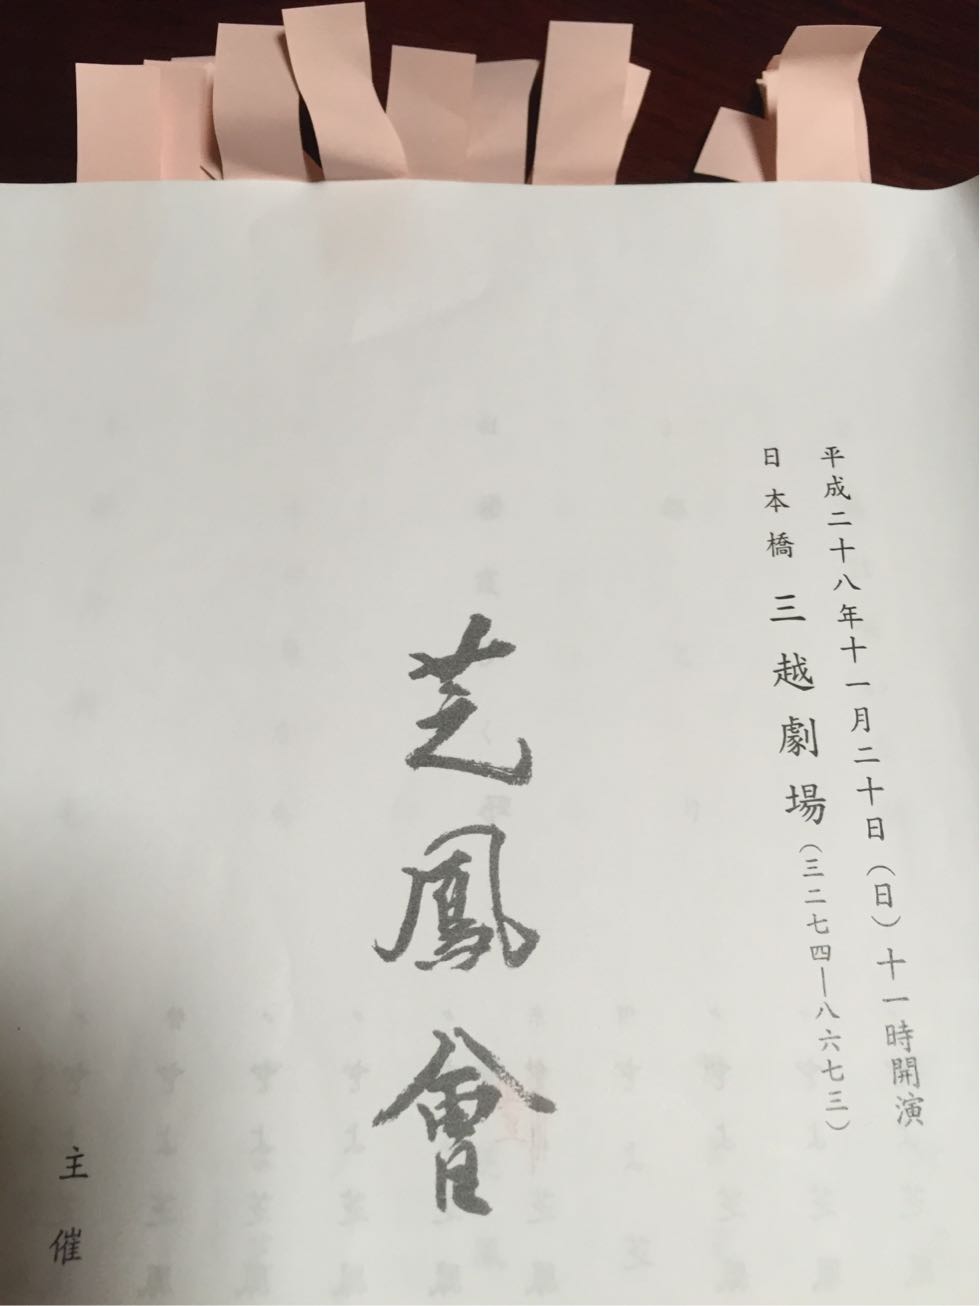 平成二十八年十一月二十日（日）十一時開演
日本橋 三越劇場（三二七四―八六七三）
芝鳳會
主催